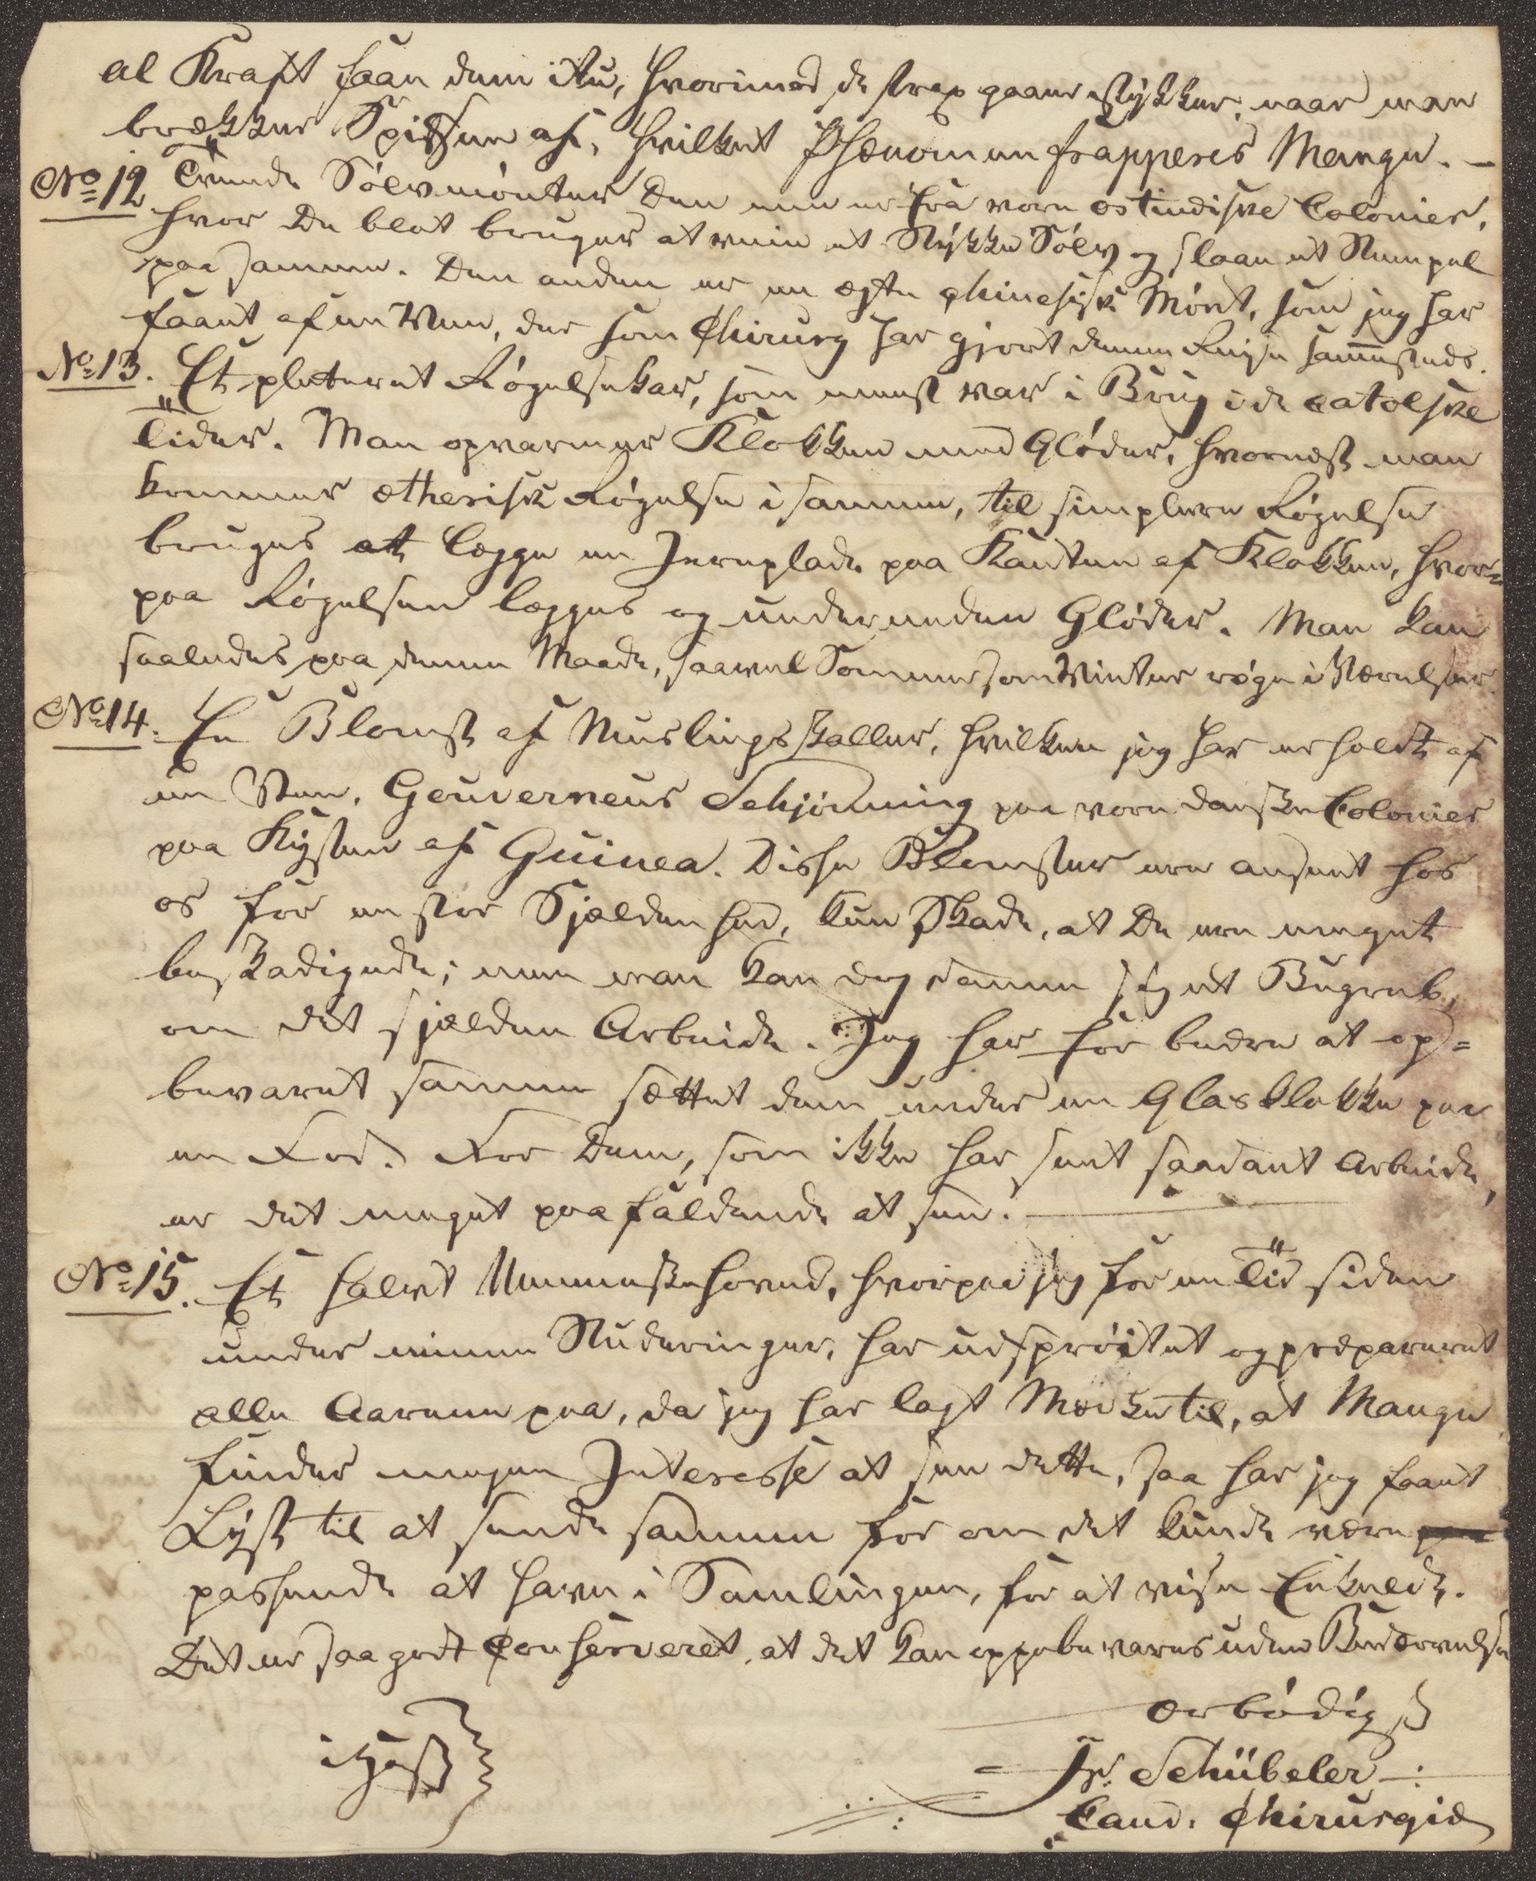 al Kraft faae dem itu, hvorimod de strax gaaer i stykker, naar man
brækker Spidsen af, hvilket Phænomen frapperes Mange. —
No 12 Tvende Sølvmønter Den ene er fra vore ostindiske Colonier,
hvor De blot bruger at veie et Stykke Sølv og slaae et Stempel
paa samme. Den anden er en ægte chinesisk Mönt, som jeg har
faaet af en Ven, der som Chirurg har gjort denne Reise sammesteds.
No 13. Et pleteret Røgelsekar, som meest var i Brug i de catolske
Tider. Man opvarmer Klokken med Glöder, hvornæst man
kommer ætherisk Røgelse i samme, til simplere Røgelse
bruges at lægge en Jernplade paa Kanten af Klokken, hvor=
paa Røgelsen lægges og underneden Glöder. Man kan
saaledes paa denne Maade, saavel Sommer som Vinter røge i Værelser
No 14. En Blomst af Muslingskaller, hvilken jeg har erholdt af
en Ven, Gouverneur Schjönning paa vore danske Colonier
paa Kysten af Guinea. Disse Blomster ere anseet hos
os for en stor Sjældenhed, kun Skade, at De ere meget
beskadigede; men man kan dog danne sig et Begreb,
om det sjældne Arbeide. Jeg har for bedre at op=
bevaret samme sættet dem under en Glasklokke paa
en Fod. For Dem, som ikke har seet saadant Arbeide,
er det meget paafaldende at see. —
No 15. Et halvt Menneskehoved, hvorpaa jeg for en Tid siden
under mine Studeringer, har udspröitet og præpareret
alle Aarerne paa, da jeg har lagt Mærke til, at Mange
finder megen Interesse at see dette, saa har jeg faaet
Lyst til at sende samme for om det kunde være
passende at have i Samlingen, for at vise Enkelte.
Det er saa godt Conserveret, at det kan oppebevares uden Bedærvelse
ærbödigst
i Hast
Fr. Schübeler
Cand. Chirurgiæ